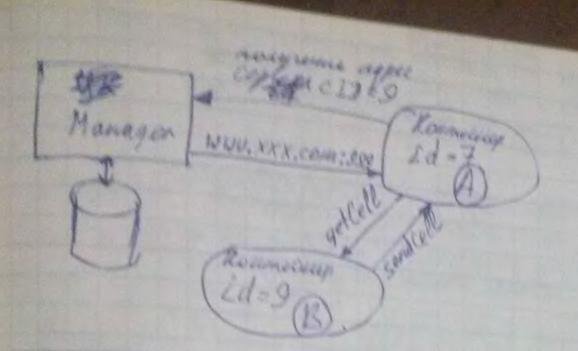 получить адрес
сервера с id=9
Manager
www.xxx.com:
Контейнер
id=7
A
getCell
sendCell
Контейнер
id=9
B